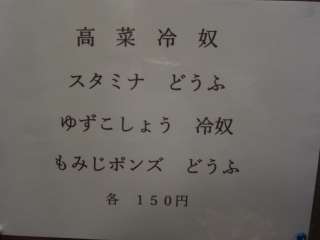 高菜冷奴
スタミナ どうふ
ゆずこしょう 冷奴
もみじポンズ どうふ
各 １５０円